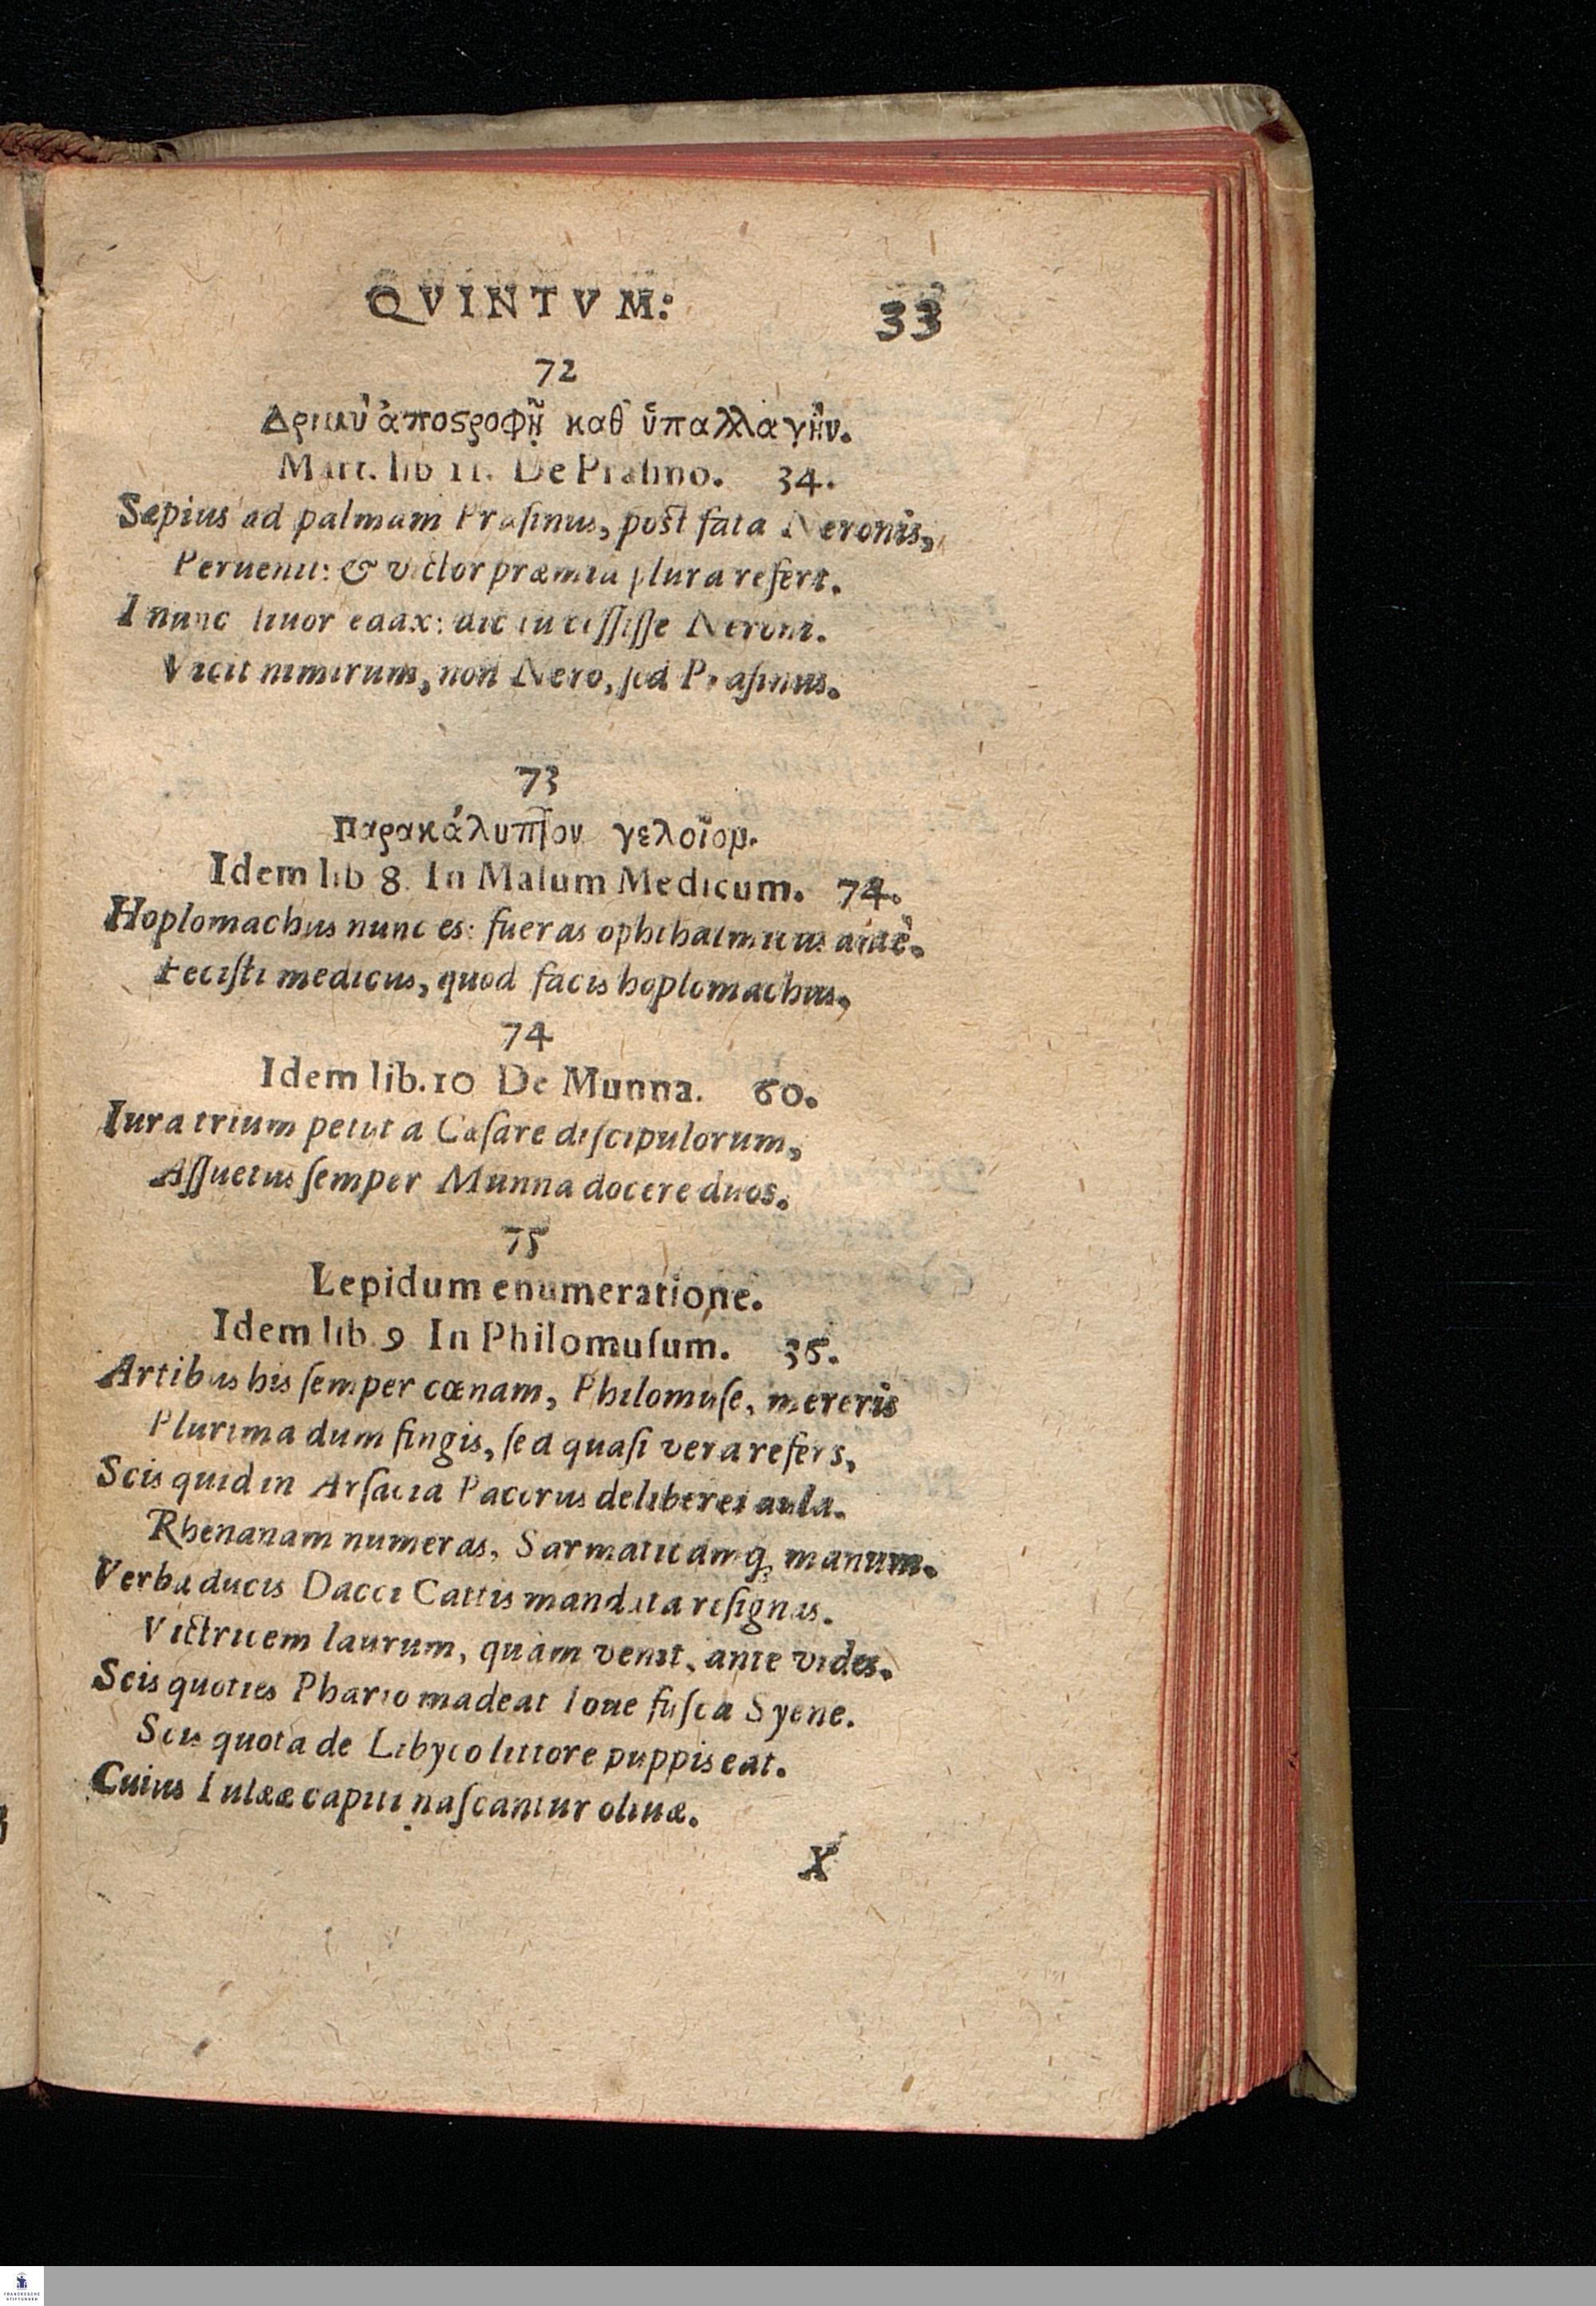 QVINTVM:
33
72
Δριμὺ ἀποστροφῇ καθ ὑπαλλαγὴν.
Mart. lib 11. De Prasino. 34.
Sæpius ad palmam Prasinus, post fata Neronis,
Peruenit: & victor præmia plura refert.
I nunc liuor edax: dic te cessisse Neroni.
Vicit nimirum, non Nero, sed Prasinus.
73
Παρακάλυπτον γελοῖον.
Idem lib 8. In Malum Medicum. 74.
Hoplomachus nunc es: fueras ophthalmicus antè.
Fecisti medicus, quod facis hoplomachus,
74
Idem lib. 10 De Munna. 60.
Iura trium petit a Cæsare discipulorum,
Assuetus semper Munna docere duos.
75
Lepidum enumeratione.
Idem lib. 9 In Philomusum. 36.
Artibus his semper cœnam, Philomuse, mereris
Plurima dum fingis, sed quasi vera refers,
Scis quid in Arsacia Pacorus deliberet aula.
Rhenanam numeras, Sarmaticamq; manum.
Verba ducis Dacci Cattis mandata resignas.
Victricem laurum, quàm venit, ante vides.
Scis quoties Phario madeat Ioue fusca Syene.
Scis quota de Libyco littore puppis eat.
Cuius Iulææ capiti nascantur oliuæ.
X
FRANCKESCHE
STIFTUNGEN